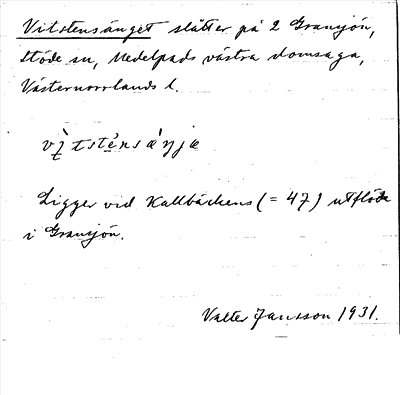 Vitstensänget slåtter på 2 Gransjön,
Stöde sn, Medelpads västra domsaga,
Västernorrlands l.
vìtsténsáŋja
Ligger vid Kallbäckens (= 47) utflöde
i Gransjön.
Valter Jansson 1931.